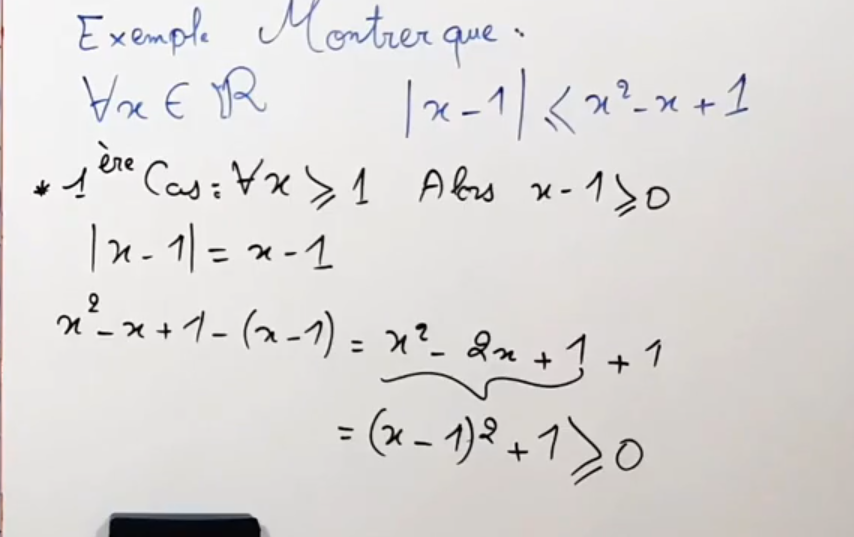 Exemple Montrer que :
∀x ∈ ℝ |x-1| ⩽ x²-x+1
* 1ère Cas : ∀x ⩾ 1 Alors x-1 ⩾ 0
|x-1| = x-1
x²-x+1-(x-1) = x²-2x+1+1
= (x-1)²+1 ⩾ 0